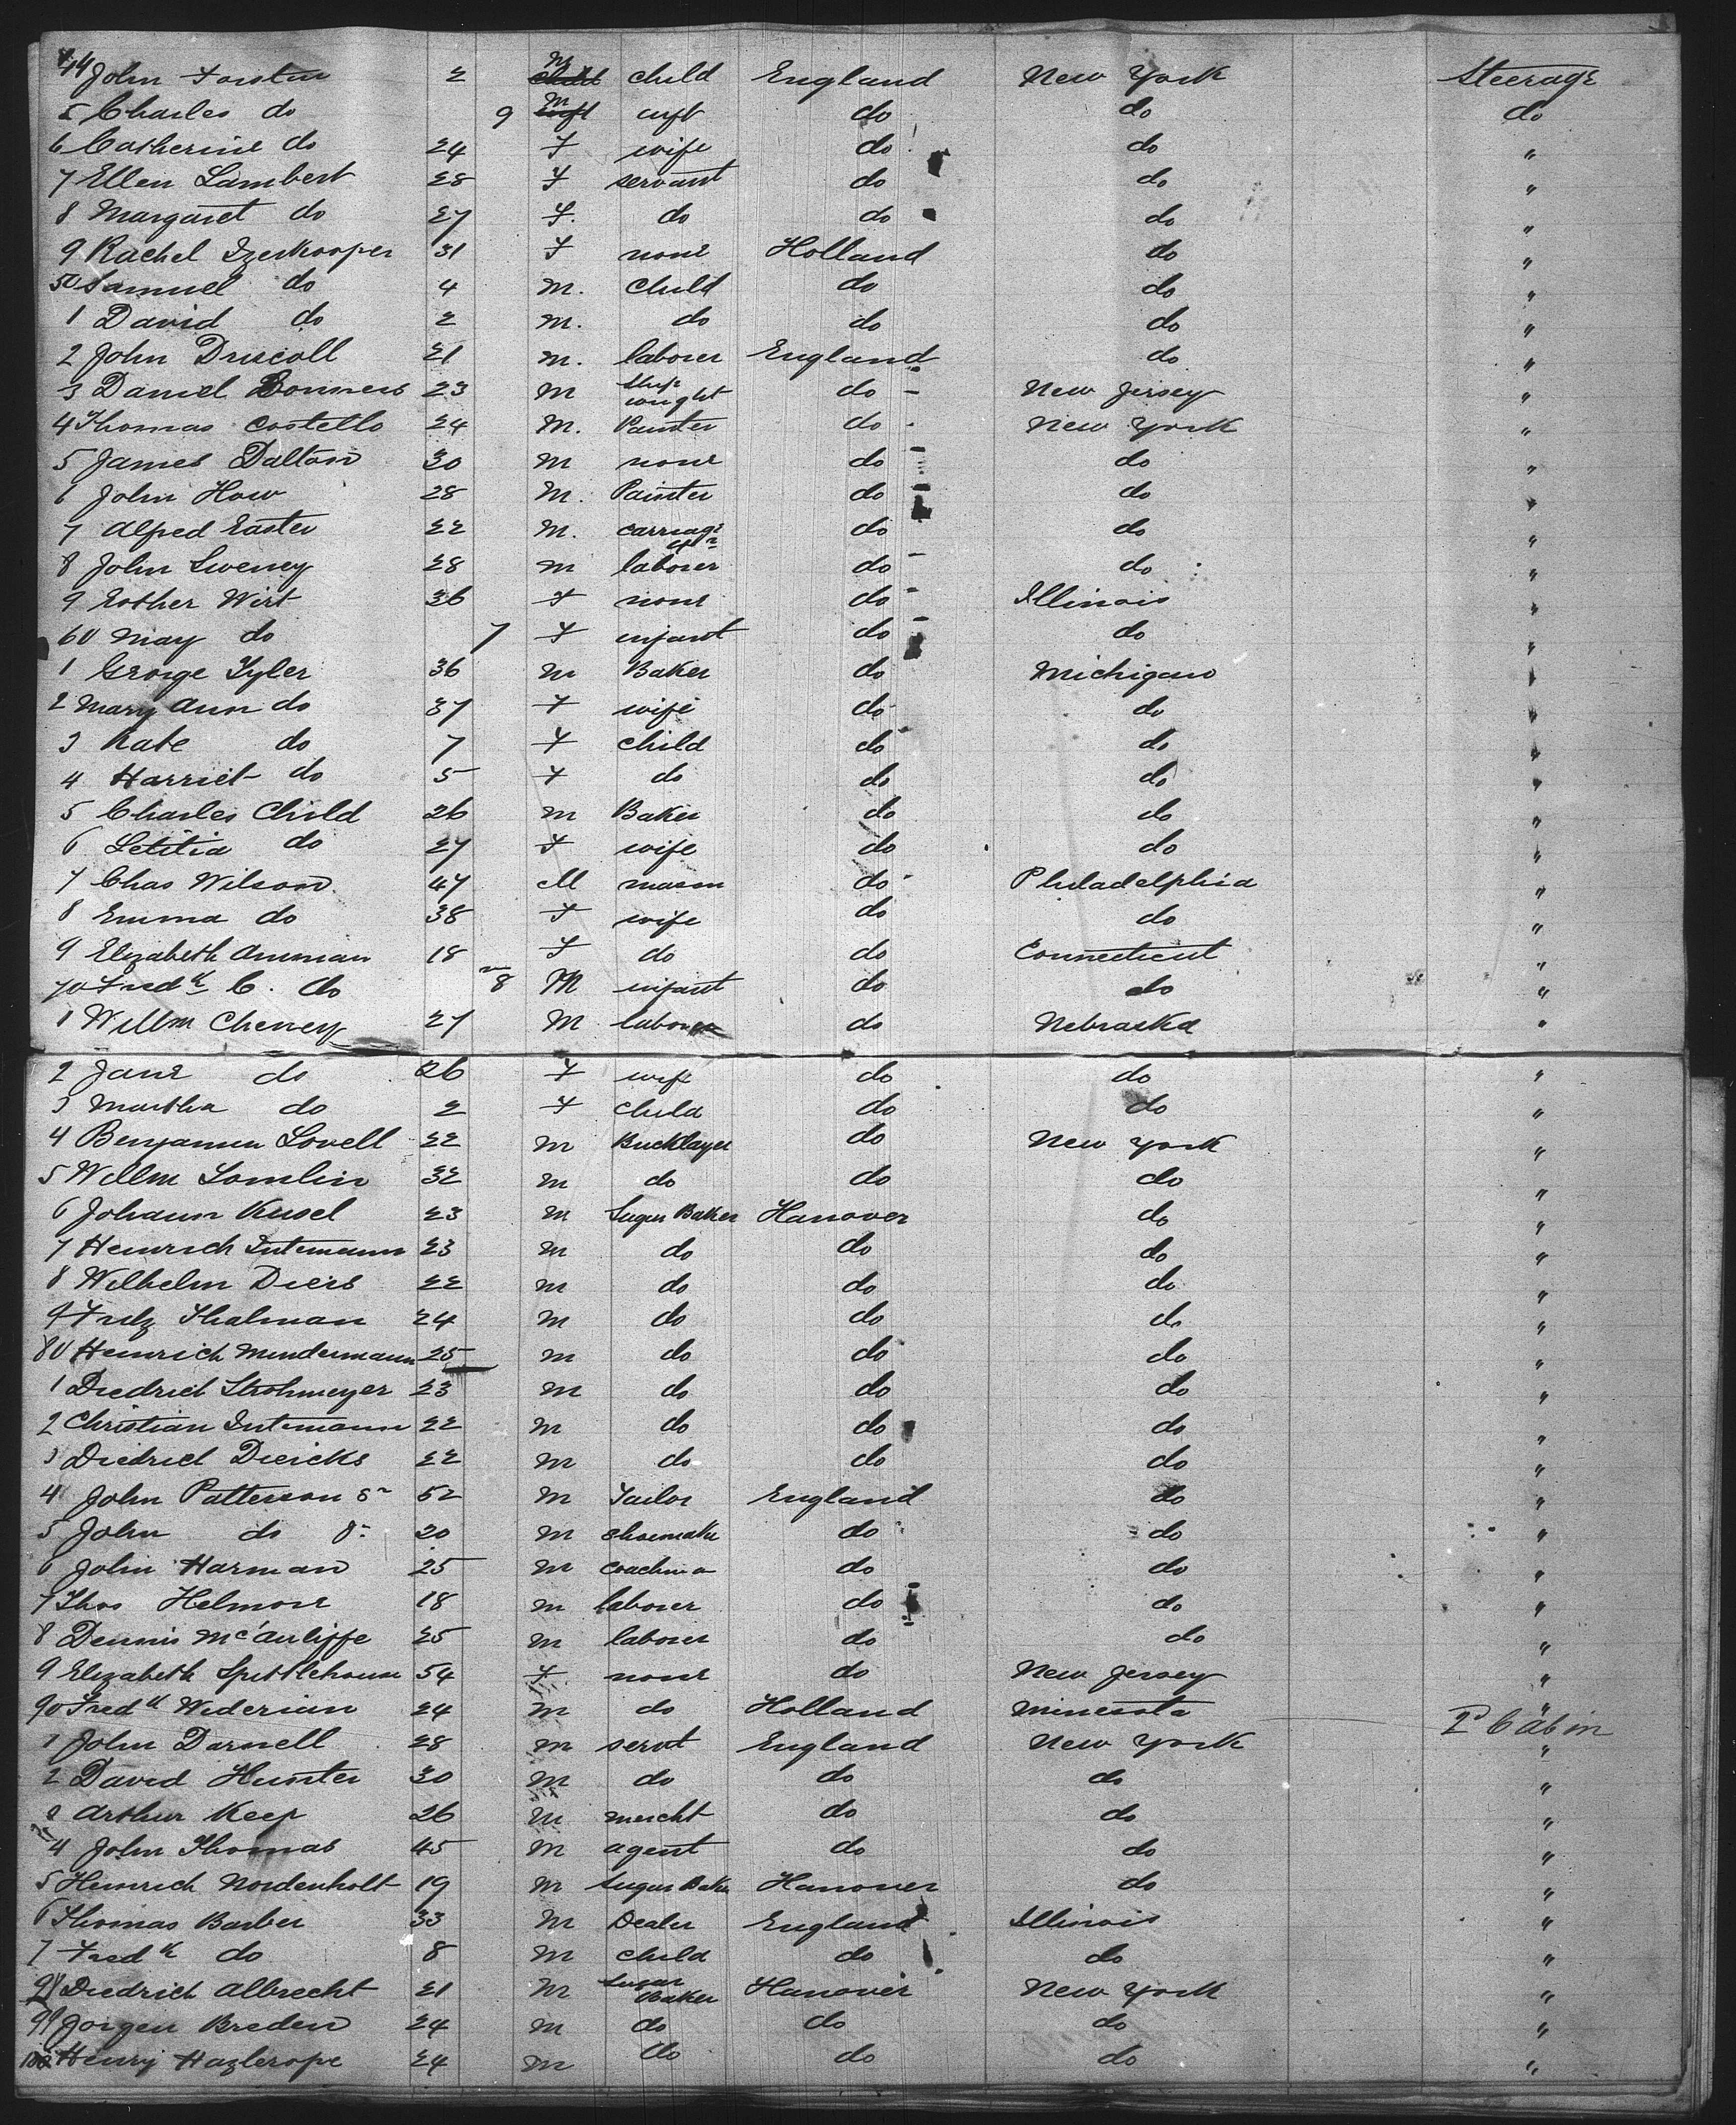 44 John Forster 2 M child England New York Steerage
5 Charles do 9 M inft do do do
6 Catherine do 24 F wife do do "
7 Ellen Lambert 28 F servant do do "
8 Margaret do 27 F. do do do "
9 Rachel 31 F none Holland do "
50 Samuel do 4 M. child do do "
1 David do 2 M. do do do "
2 John Driscoll 21 M. laborer England do "
3 Daniel 23 M Ship wright do New Jersey "
4 Thomas Costello 24 M. Painter do New York "
5 James Dalton 30 M none do do "
6 John How 28 M. Painter do do "
7 Alfred Easter 22 M. carriage do do "
8 John Sweney 28 M laborer do do "
9 Esther Wirt 36 F none do Illinois "
60 May do 7 F infant do do "
1 George Tyler 36 M Baker do Michigan "
2 Mary Ann do 37 F wife do do "
3 Kate do 7 F child do do "
4 Harriet do 5 F do do do "
5 Charles Child 26 M Baker do do "
6 Letitia do 27 F wife do do "
7 Chas Wilson 47 M mason do Philadelphia "
8 Emma do 38 F wife do do "
9 Elizabeth Amman 18 F do do Connecticut "
70 Fredk C. do 8 M infant do do "
1 Willm Cheney 27 M laborer do Nebraska "
2 Jane do 26 F wife do do "
3 Martha do 2 F child do do "
4 Benjamin Lovell 22 M Bricklayer do New York "
5 Willm Tomlin 32 M do do do "
6 Johann Kusel 23 M Sugar Baker Hanover do "
7 Heinrich Intemann 23 M do do do "
8 Wilhelm Diers 22 M do do do "
9 Fritz Thalman 24 M do do do "
80 Heinrich Mindermann 25 M do do do "
1 Diedrich Strohmeyer 23 M do do do "
2 Christian Intemann 22 M do do do "
3 Diedrich Diercks 22 M do do do "
4 John Patterson Sr 52 M Tailor England do "
5 John do Jr 20 M shoemaker do do "
6 John Harman 25 M coachman do do "
7 Thos Helmore 18 M laborer do do "
8 Dennis McAuliffe 25 M laborer do do "
9 Elizabeth Spittlehouse 54 F none do New Jersey "
90 Fredk Wederian 24 M do Holland Minesota "
1 John Darnell 28 M servt England New York 2d Cabin "
2 David Hunter 30 M do do do "
3 Arthur Keep 26 M mercht do do "
4 John Thomas 45 M agent do do "
5 Heinrich Nordenholt 19 M Sugar Baker Hanover do "
6 Thomas Barber 33 M Dealer England Illinois "
7 Fredk do 8 M child do do "
98 Diedrich Albrecht 21 M Sugar Baker Hanover New York "
99 Jorgen Breden 24 M do do do "
100 Henry Hazlerope 24 M do do do "